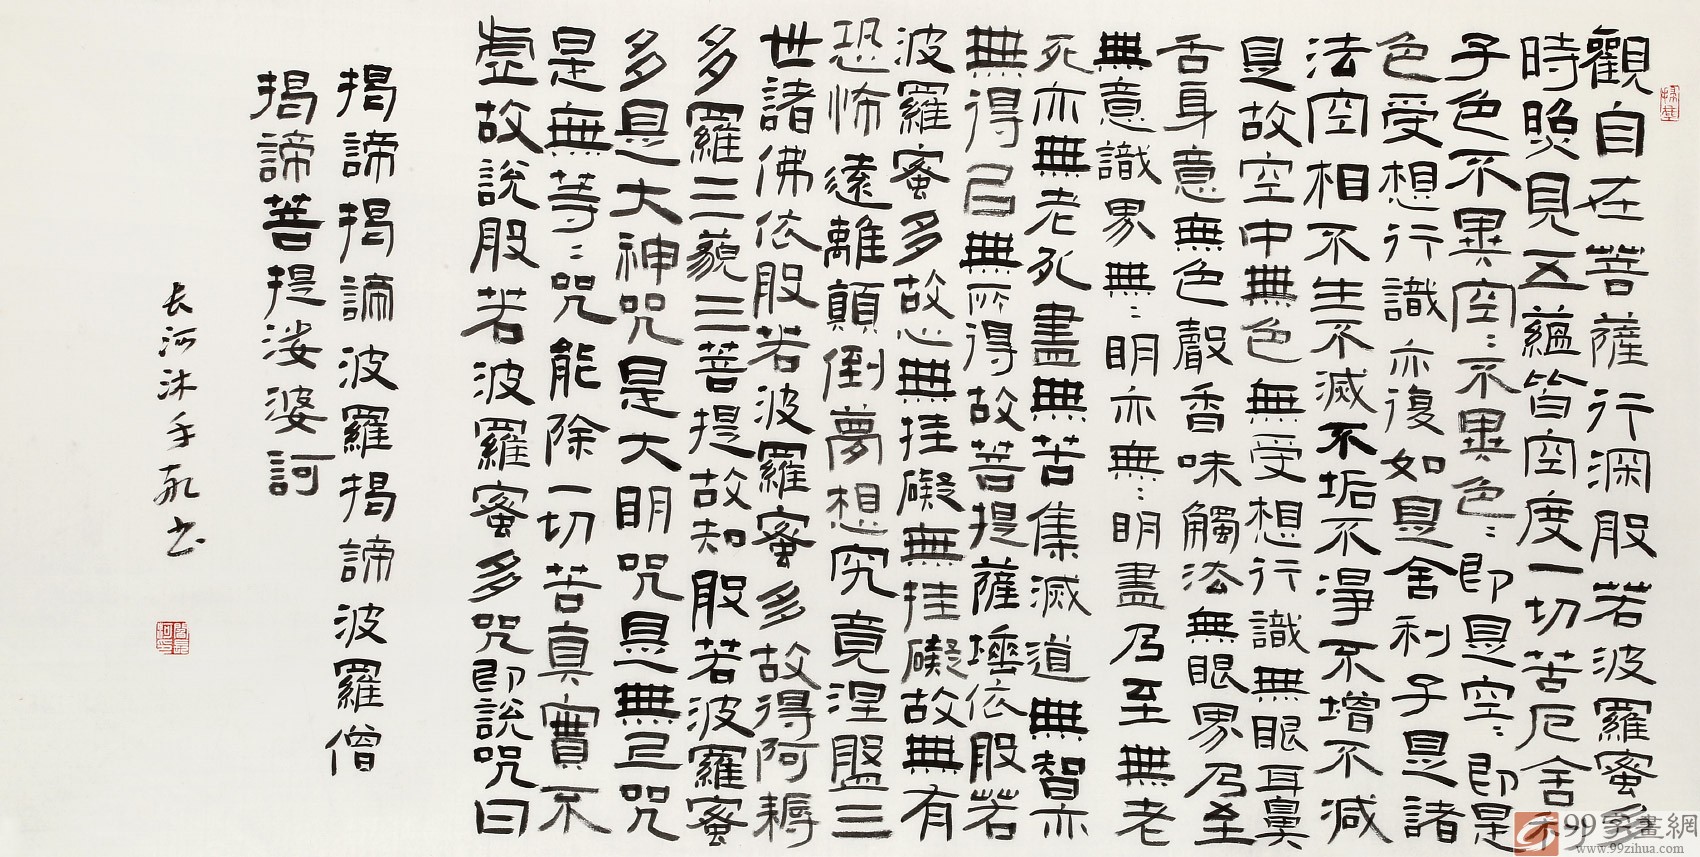 觀自在菩薩行深般若波羅蜜多
時照見五蘊皆空度一切苦厄舍利
子色不異空〻不異色〻即是空〻即是
色受想行識亦復如是舍利子是諸
法空相不生不滅不垢不淨不增不減
是故空中無色無受想行識無眼耳鼻
舌身意無色聲香味觸法無眼界乃至
無意識界無〻明亦無〻明盡乃至無老
死亦無老死盡無苦集滅道無智亦
無得以無所得故菩提薩埵依般若
波羅蜜多故心無挂礙無挂礙故無有
恐怖遠離顛倒夢想究竟涅盤三
世諸佛依般若波羅蜜多故得阿耨
多羅三藐三菩提故知般若波羅蜜
多是大神咒是大明咒是無上咒
是無等〻咒能除一切苦真實不
虛故說般若波羅蜜多咒即說咒曰
揭諦揭諦波羅揭諦波羅僧
揭諦菩提娑婆訶
长河沐手敬书
99字畫網
www.99zihua.com